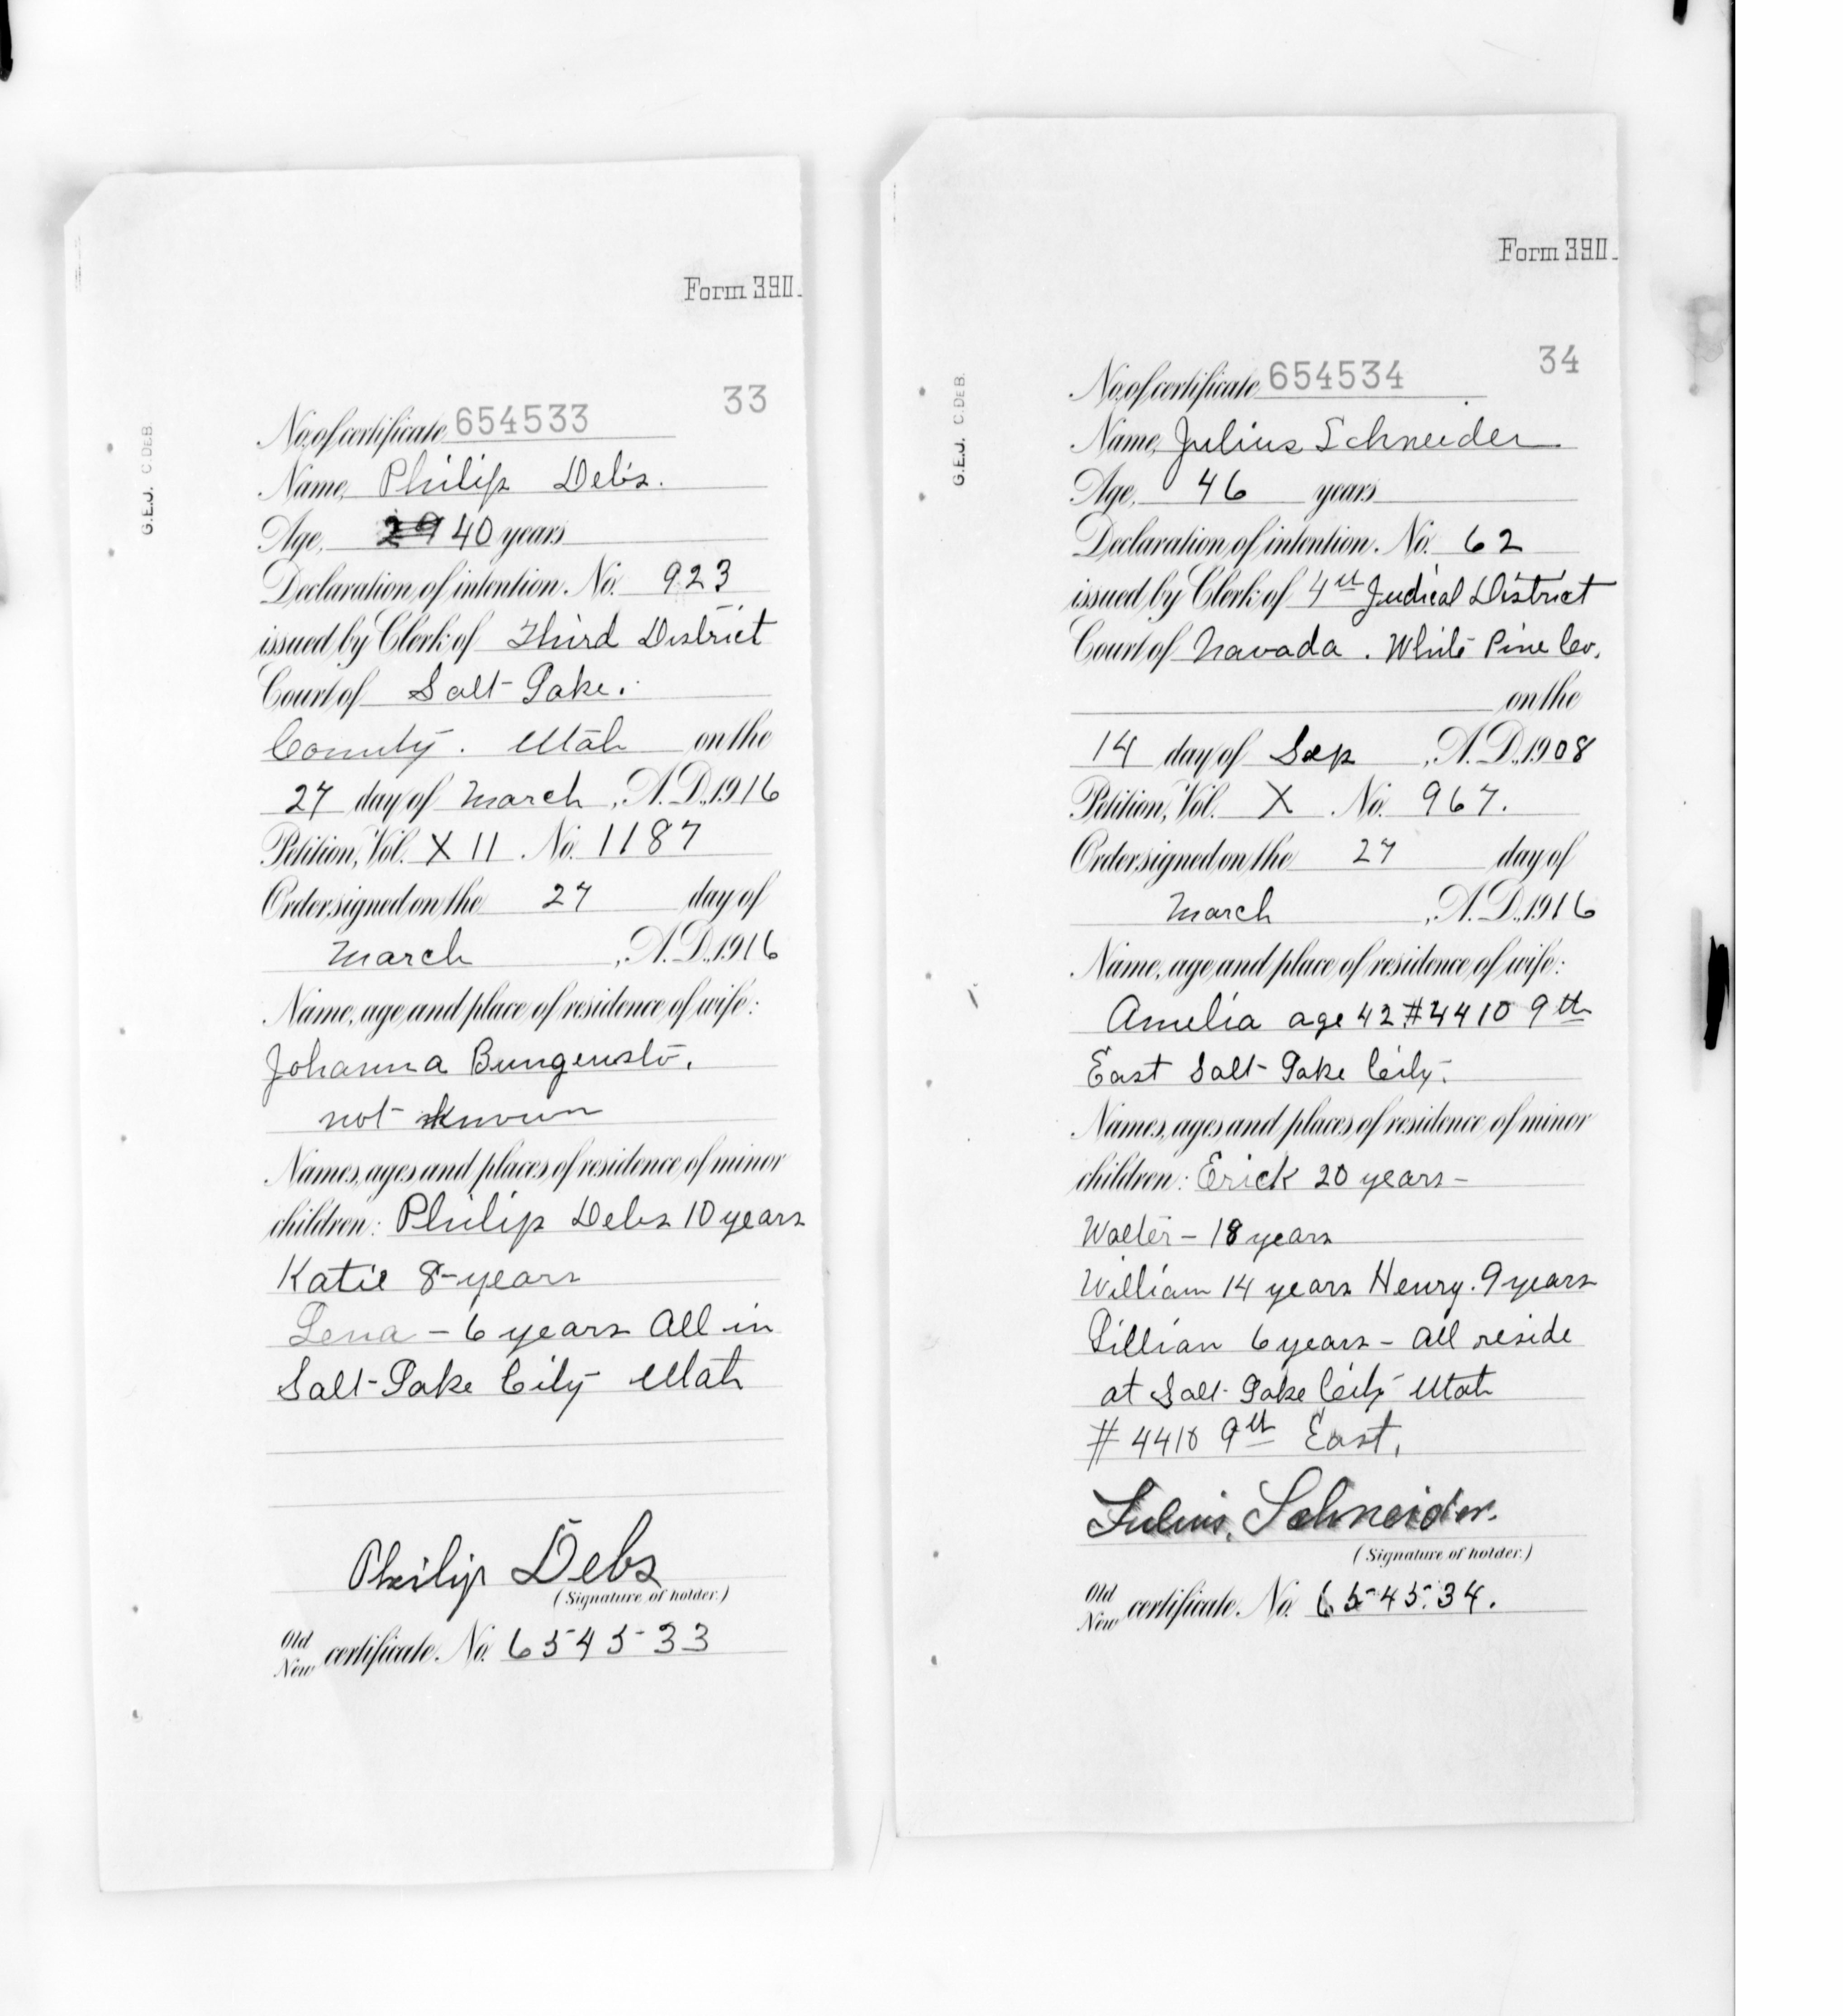 Form 390.
33
No. of certificate 654533
Name, Philip Debs.
Age, 29 40 years
Declaration of intention. No. 923
issued by Clerk of Third District
Court of Salt Lake.
County. Utah on the
27 day of March, A.D. 1916
Petition, Vol. XII. No. 1187
Order signed on the 27 day of
March, A.D. 1916
Name, age and place of residence of wife:
Johanna
not known
Names, ages and places of residence of minor
children: Philip Debs 10 years
Katie 8 years
Lena - 6 years All in
Salt Lake City Utah
Philip Debs
(Signature of holder.)
Old
New certificate. No. 654533
G.E.J. C.DEB.
Form 390.
34
No. of certificate 654534
Name, Julius Schneider
Age, 46 years
Declaration of intention. No. 62
issued by Clerk of 4th Judical District
Court of Navada. White Pine Co.
on the
14 day of Sep, A.D. 1908
Petition, Vol. X. No. 967.
Order signed on the 27 day of
March, A.D. 1916
Name, age and place of residence of wife:
Amelia age 42 #4410 9th
East Salt Lake City.
Names, ages and places of residence of minor
children: Erick 20 years -
Walter - 18 years
William 14 years Henry. 9 years
Lillian 6 years - All reside
at Salt Lake City Utah
#4410 9th East.
Julius. Schneider.
(Signature of holder.)
Old
New certificate. No. 654534.
G.E.J. C.DEB.